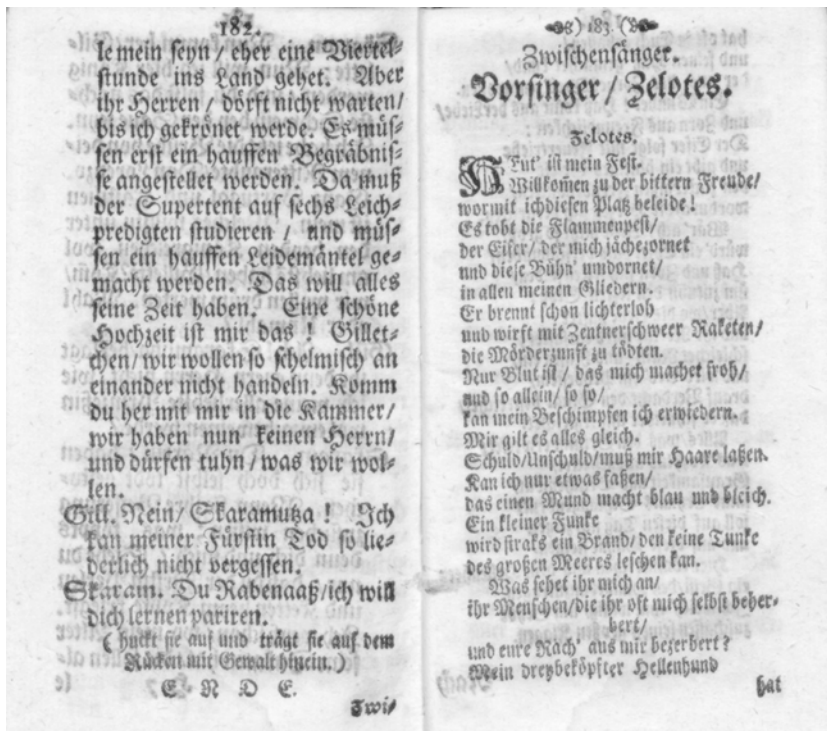 182.
le mein seyn / eher eine Viertel-
stunde ins Land gehet. Aber
ihr Herren / dörft nicht warten /
bis ich gekrönet werde. Es müs-
sen erst ein hauffen Begräbnis-
se angestellet werden. Da muß
der Supertent auf sechs Leich-
predigten studieren / und müs-
sen ein hauffen Leidemäntel ge-
macht werden. Das will alles
seine Zeit haben. Eine schöne
Hochzeit ist mir das ! Gillet-
chen / wir wollen so schelmisch an
einander nicht handeln. Komm
du her mit mir in die Kammer /
wir haben nun keinen Herrn /
und dürfen tuhn / was wir wol-
len.
Gill. Nein / Skaramutza ! Ich
kan meiner Fürstin Tod so lie-
derlich nicht vergessen.
Skaram. Du Rabenaaß / ich will
dich lernen pariren.
( huckt sie auf und trägt sie auf dem
Rücken mit Gewalt hinein. )
E. N. D E.
Zwi-
183
Zwischensänger.
Vorsinger / Zelotes.
Zelotes.
Heut' ist mein Fest.
Willkom̃en zu der bittern Freude /
wormit ich diesen Platz beleide !
Es tobt die Flammenpest /
der Eifer / der mich jächezornet
und diese Bühn' umdornet /
in allen meinen Gliedern.
Er brennt schon lichterloh
und wirft mit Zentnerschweer Raketen /
die Mörderzunft zu tödten.
Nur Blut ist / das mich machet froh /
und so allein / so so /
kan mein Beschimpfen ich erwiedern.
Mir gilt es alles gleich.
Schuld / Unschuld / muß mir Haare laßen.
Kan ich nur etwas faßen /
das einen Mund macht blau und bleich.
Ein kleiner Funke
wird straks ein Brand / den keine Tunke
des großen Meeres leschen kan.
Was sehet ihr mich an /
ihr Menschen / die ihr oft mich selbst beher-
bert /
und eure Rach' aus mir bezerbert ?
Mein dreybeköpfter Hellenhund
hat